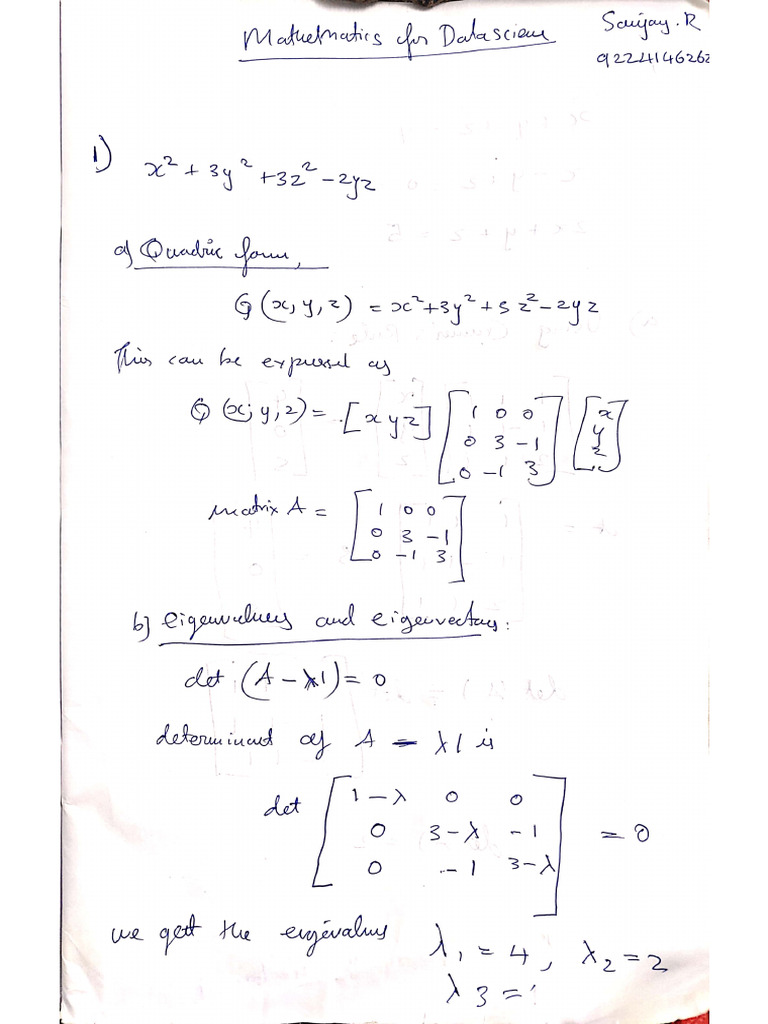 Mathematics for Datascience
Sanjay.R
9224146262
1) x² + 3y² + 3z² - 2yz
a) Quadric form,
Q (x, y, z) = x² + 3y² + 3z² - 2yz
This can be expressed as
Q (x, y, z) = [x y z] [1 0 0] [x]
[0 3 -1] [y]
[0 -1 3] [z]
matrix A = [1 0 0]
[0 3 -1]
[0 -1 3]
b) eigenvalues and eigenvectors:
det (A - λI) = 0
determinant of A - λI is
det [1-λ 0 0]
[0 3-λ -1] = 0
[0 -1 3-λ]
we get the eigenvalues λ₁ = 4, λ₂ = 2
λ3 =